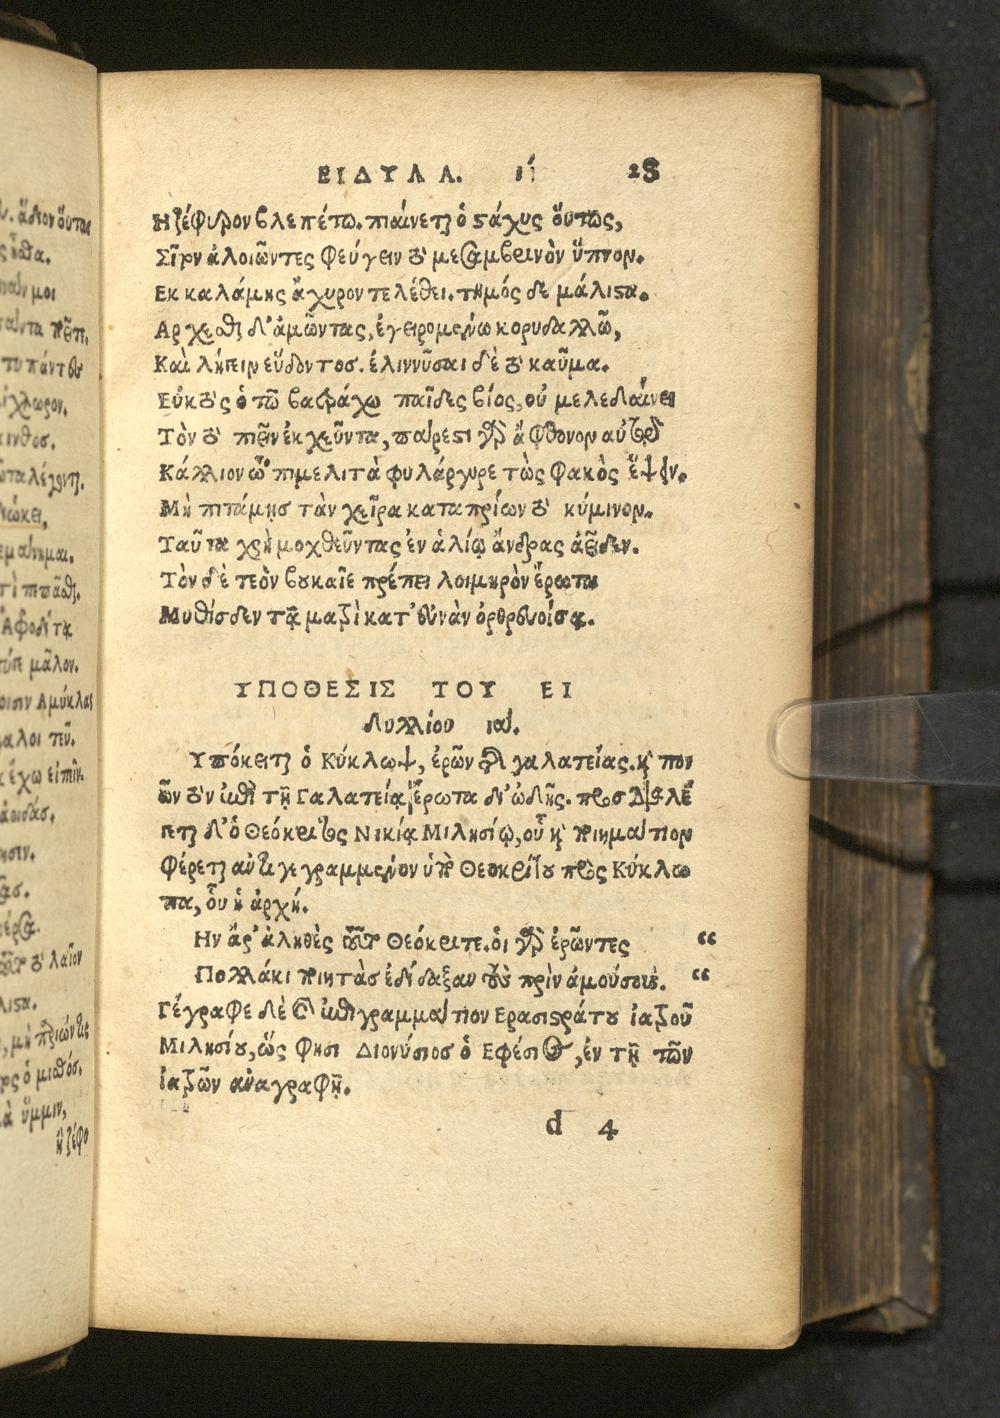 ν. ἅδιον οὕτως
μοι
πάντα
τὺ πάντες
χλωρον.
κινθος.
τα λέγοντι.
διώκει,
εμαίνημαι.
Ἀφροδίτᾳ
μᾶλον.
οισιν Αμύκλας
καλοι τεῦ.
ἔχω εἰπῆν.
ἀοιδάς.
λαῖον
λιστα.
ρος ὁ μισθός.
ὔμμιν,
ἢ ζέφυ
ΕΙΔΥΛΛ. ιʹ 28
Η ζέφυρον βλεπέτω. πιαίνεται ὁ στάχυς οὕτως,
Σῖτον ἀλοιῶντες φεύγειν τὸ μεσαμβρινὸν ὕπνον.
Εκ καλάμης ἄχυρον τελέθει. τημός δε μάλιστα.
Αρχεσθαι δ' ἀμῶντας, ἐγειρομένω κορυδαλλῶ,
Καὶ λήπειν εὕδοντοσ. ἐλιννῦσαι δὲ τὸ καῦμα.
Εὐκτὸς ὁ τῶ βατράχω παῖδες βίος, οὐ μελεδαίνει
Τὸν τὸ πιεῖν ἐκχεῦντα, πάρεστι γὰρ ἄφθονον αὐτῷ
Κάλλιον ὦ 'πιμελιτὰ φυλάργυρε τὼς φακὸς ἕψειν.
Μὴ 'πιτάμησ τὰν χεῖρα καταπρίων τὸ κύμινον.
Ταῦτα χρὴ μοχθεῦντας ἐν ἁλίῳ ἄνδρας ἀείδεν.
Τὸν δὲ τεὸν βουκαῖε πρέπει λοιμηρὸν ἔρωτα
Μυθίσδεν τᾷ ματρὶ κατ' εὐνὰν ὀρθρευοίσᾳ.
ΥΠΟΘΕΣΙΣ ΤΟΥ ΕΙ
δυλλίου ιαʹ.
Υπόκειται ὁ Κύκλωψ, ἐρῶν τῆς γαλατείας. καὶ που
ῶν τὸν ἐπὶ τῇ Γαλατείᾳ ἔρωτα δι' ᾠδῆς. προσδιαλέ
γεται δ' ὁ Θεόκριτος Νικίᾳ Μιλησίῳ, οὗ καὶ ποιημάτιον
φέρεται αὐτῷ γεγραμμένον ὑπὲρ Θεοκρίτου πρὸς Κύκλω
πα, οὗ ἡ ἀρχή.
Ην ἄρ' ἀληθὲς τοῦτο Θεόκριτε. ὁι γὰρ ἐρῶντες “
Πολλάκι ποιητὰσ ἐδίδαξαν τοὺς πρὶν ἀμούσους. “
Γέγραφε δὲ καὶ ἐπιγραμμάτιον Ερασιστράτου ἰατροῦ
Μιλησίου, ὥς φησι Διονύσιοσ ὁ Εφέσιος, ἐν τῇ τῶν
ἰατρῶν αναγραφῇ.
d 4